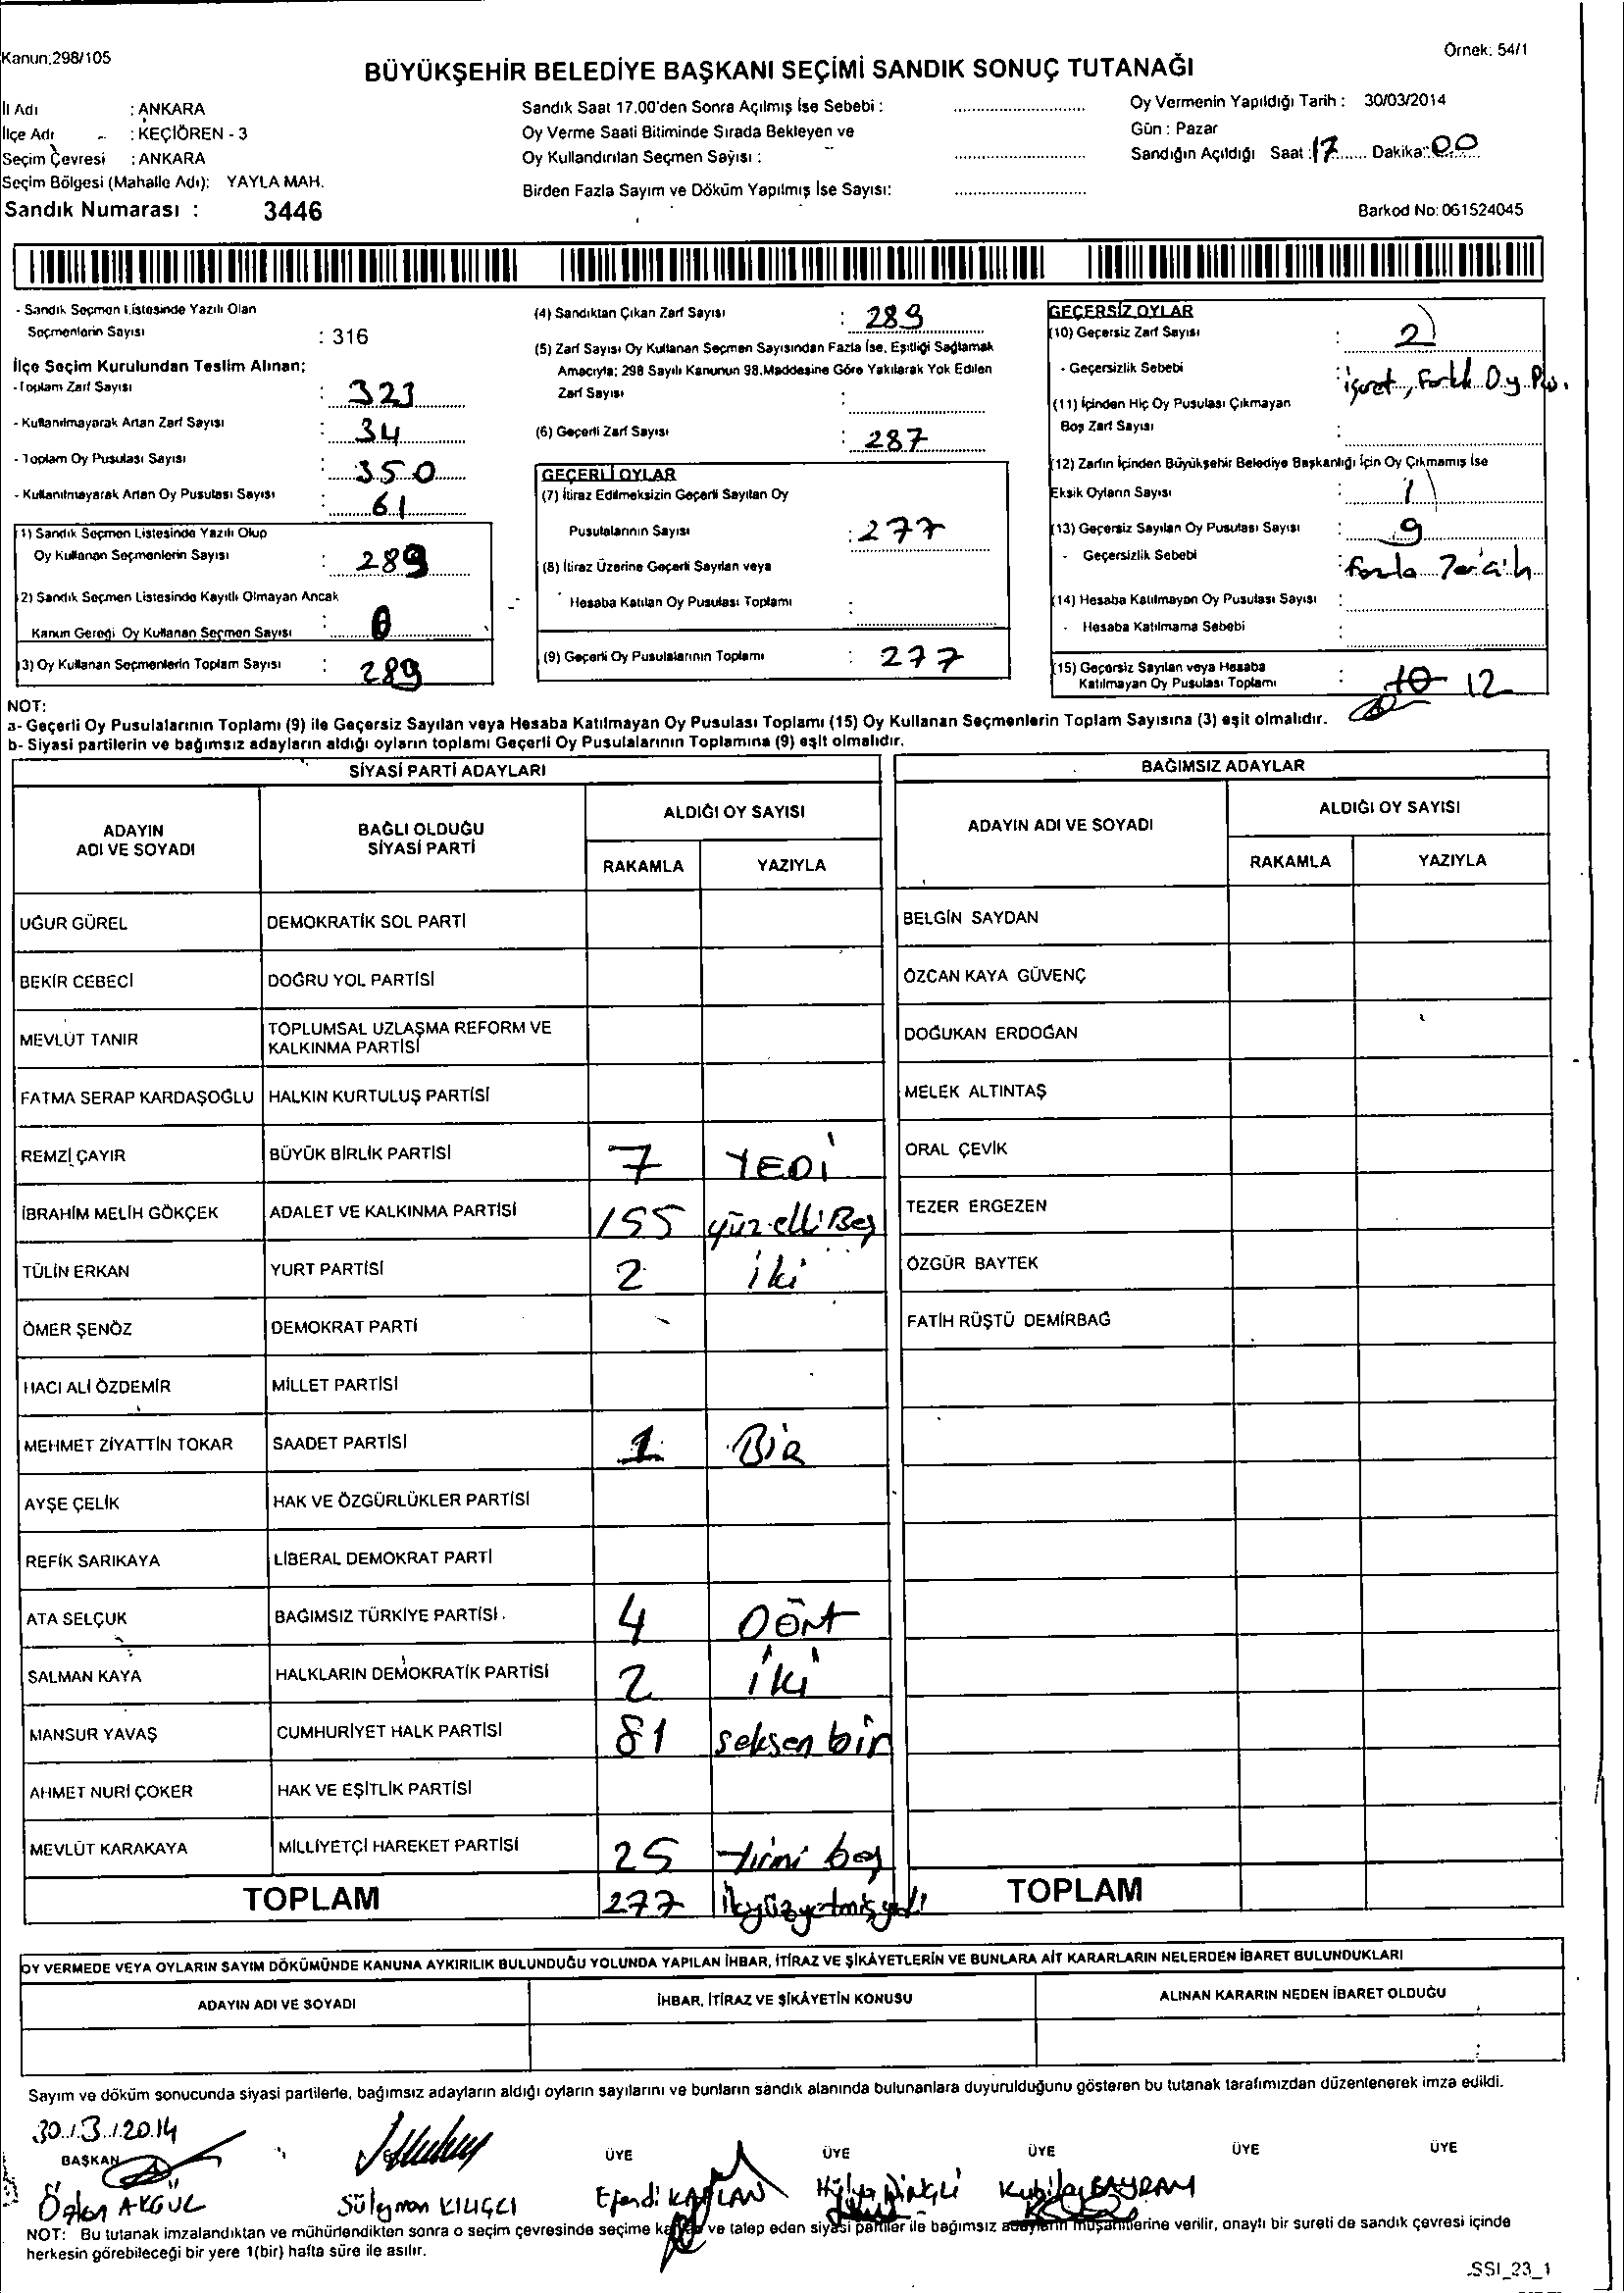 Kanun:298/105
Örnek: 54/1
BÜYÜKŞEHİR BELEDİYE BAŞKANI SEÇİMİ SANDIK SONUÇ TUTANAĞI
İl Adı : ANKARA
İlçe Adı : KEÇİÖREN - 3
Seçim Çevresi : ANKARA
Seçim Bölgesi (Mahalle Adı): YAYLA MAH.
Sandık Numarası : 3446
Sandık Saat 17.00'den Sonra Açılmış İse Sebebi :
Oy Verme Saati Bitiminde Sırada Bekleyen ve
Oy Kullandırılan Seçmen Sayısı :
Birden Fazla Sayım ve Döküm Yapılmış İse Sayısı:
Oy Vermenin Yapıldığı Tarih : 30/03/2014
Gün : Pazar
Sandığın Açıldığı Saat : 17 Dakika: 00
Barkod No: 061524045
- Sandık Seçmen Listesinde Yazılı Olan
Seçmenlerin Sayısı : 316
İlçe Seçim Kurulundan Teslim Alınan;
- Toplam Zarf Sayısı : 323
- Kullanılmayarak Artan Zarf Sayısı : 34
- Toplam Oy Pusulası Sayısı : 350
- Kullanılmayarak Artan Oy Pusulası Sayısı : 61
(1) Sandık Seçmen Listesinde Yazılı Olup
Oy Kullanan Seçmenlerin Sayısı : 289
(2) Sandık Seçmen Listesinde Kayıtlı Olmayan Ancak
Kanun Gereği Oy Kullanan Seçmen Sayısı : 0
(3) Oy Kullanan Seçmenlerin Toplam Sayısı : 289
(4) Sandıktan Çıkan Zarf Sayısı : 289
(5) Zarf Sayısı Oy Kullanan Seçmen Sayısından Fazla İse, Eşitliği Sağlamak
Amacıyla; 298 Sayılı Kanunun 98.Maddesine Göre Yakılarak Yok Edilen
Zarf Sayısı :
(6) Geçerli Zarf Sayısı : 287
GEÇERLİ OYLAR
(7) İtiraz Edilmeksizin Geçerli Sayılan Oy
Pusulalarının Sayısı : 277
(8) İtiraz Üzerine Geçerli Sayılan veya
Hesaba Katılan Oy Pusulası Toplamı :
(9) Geçerli Oy Pusulalarının Toplamı : 277
GEÇERSİZ OYLAR
(10) Geçersiz Zarf Sayısı : 2
- Geçersizlik Sebebi : işaret, Farklı Oy Pus.
(11) İçinden Hiç Oy Pusulası Çıkmayan
Boş Zarf Sayısı :
(12) Zarfın İçinden Büyükşehir Belediye Başkanlığı İçin Oy Çıkmamış İse
Eksik Oyların Sayısı : 1
(13) Geçersiz Sayılan Oy Pusulası Sayısı : 9
- Geçersizlik Sebebi : fazla Tercih
(14) Hesaba Katılmayan Oy Pusulası Sayısı :
- Hesaba Katılmama Sebebi :
(15) Geçersiz Sayılan veya Hesaba
Katılmayan Oy Pusulası Toplamı : 10 12
NOT:
a- Geçerli Oy Pusulalarının Toplamı (9) ile Geçersiz Sayılan veya Hesaba Katılmayan Oy Pusulası Toplamı (15) Oy Kullanan Seçmenlerin Toplam Sayısına (3) eşit olmalıdır.
b- Siyasi partilerin ve bağımsız adayların aldığı oyların toplamı Geçerli Oy Pusulalarının Toplamına (9) eşit olmalıdır.
SİYASİ PARTİ ADAYLARI
ADAYIN ADI VE SOYADI BAĞLI OLDUĞU SİYASİ PARTİ ALDIĞI OY SAYISI
RAKAMLA YAZIYLA
UĞUR GÜREL DEMOKRATİK SOL PARTİ
BEKİR CEBECİ DOĞRU YOL PARTİSİ
MEVLÜT TANIR TOPLUMSAL UZLAŞMA REFORM VE KALKINMA PARTİSİ
FATMA SERAP KARDAŞOĞLU HALKIN KURTULUŞ PARTİSİ
REMZİ ÇAYIR BÜYÜK BİRLİK PARTİSİ 7 YEDİ
İBRAHİM MELİH GÖKÇEK ADALET VE KALKINMA PARTİSİ 155 yüzelliBeş
TÜLİN ERKAN YURT PARTİSİ 2 iki
ÖMER ŞENÖZ DEMOKRAT PARTİ
HACI ALİ ÖZDEMİR MİLLET PARTİSİ
MEHMET ZİYATTİN TOKAR SAADET PARTİSİ 1 BiR
AYŞE ÇELİK HAK VE ÖZGÜRLÜKLER PARTİSİ
REFİK SARIKAYA LİBERAL DEMOKRAT PARTİ
ATA SELÇUK BAĞIMSIZ TÜRKİYE PARTİSİ 4 DÖRt
SALMAN KAYA HALKLARIN DEMOKRATİK PARTİSİ 2 iki
MANSUR YAVAŞ CUMHURİYET HALK PARTİSİ 81 seksen bir
AHMET NURİ ÇOKER HAK VE EŞİTLİK PARTİSİ
MEVLÜT KARAKAYA MİLLİYETÇİ HAREKET PARTİSİ 25 Yirmi beş
TOPLAM 277 ikiyüzyetmişyedi
BAĞIMSIZ ADAYLAR
ADAYIN ADI VE SOYADI ALDIĞI OY SAYISI
RAKAMLA YAZIYLA
BELGİN SAYDAN
ÖZCAN KAYA GÜVENÇ
DOĞUKAN ERDOĞAN
MELEK ALTINTAŞ
ORAL ÇEVİK
TEZER ERGEZEN
ÖZGÜR BAYTEK
FATİH RÜŞTÜ DEMİRBAĞ
TOPLAM
OY VERMEDE VEYA OYLARIN SAYIM DÖKÜMÜNDE KANUNA AYKIRILIK BULUNDUĞU YOLUNDA YAPILAN İHBAR, İTİRAZ VE ŞİKÂYETLERİN VE BUNLARA AİT KARARLARIN NELERDEN İBARET BULUNDUKLARI
ADAYIN ADI VE SOYADI İHBAR, İTİRAZ VE ŞİKÂYETİN KONUSU ALINAN KARARIN NEDEN İBARET OLDUĞU
Sayım ve döküm sonucunda siyasi partilerle, bağımsız adayların aldığı oyların sayılarını ve bunların sandık alanında bulunanlara duyurulduğunu gösteren bu tutanak tarafımızdan düzenlenerek imza edildi.
30/3/2014
BAŞKAN ÜYE ÜYE ÜYE ÜYE ÜYE
AKGÜL Süleyman KILIÇCI Efendi KAPLAN Hülya Kubilay BAYRAM
NOT: Bu tutanak imzalandıktan ve mühürlendikten sonra o seçim çevresinde seçime ve talep eden siyasi partiler ile bağımsız adayların müşahitlerine verilir, onaylı bir sureti de sandık çevresi içinde
herkesin görebileceği bir yere 1(bir) hafta süre ile asılır.
SSI_23_1